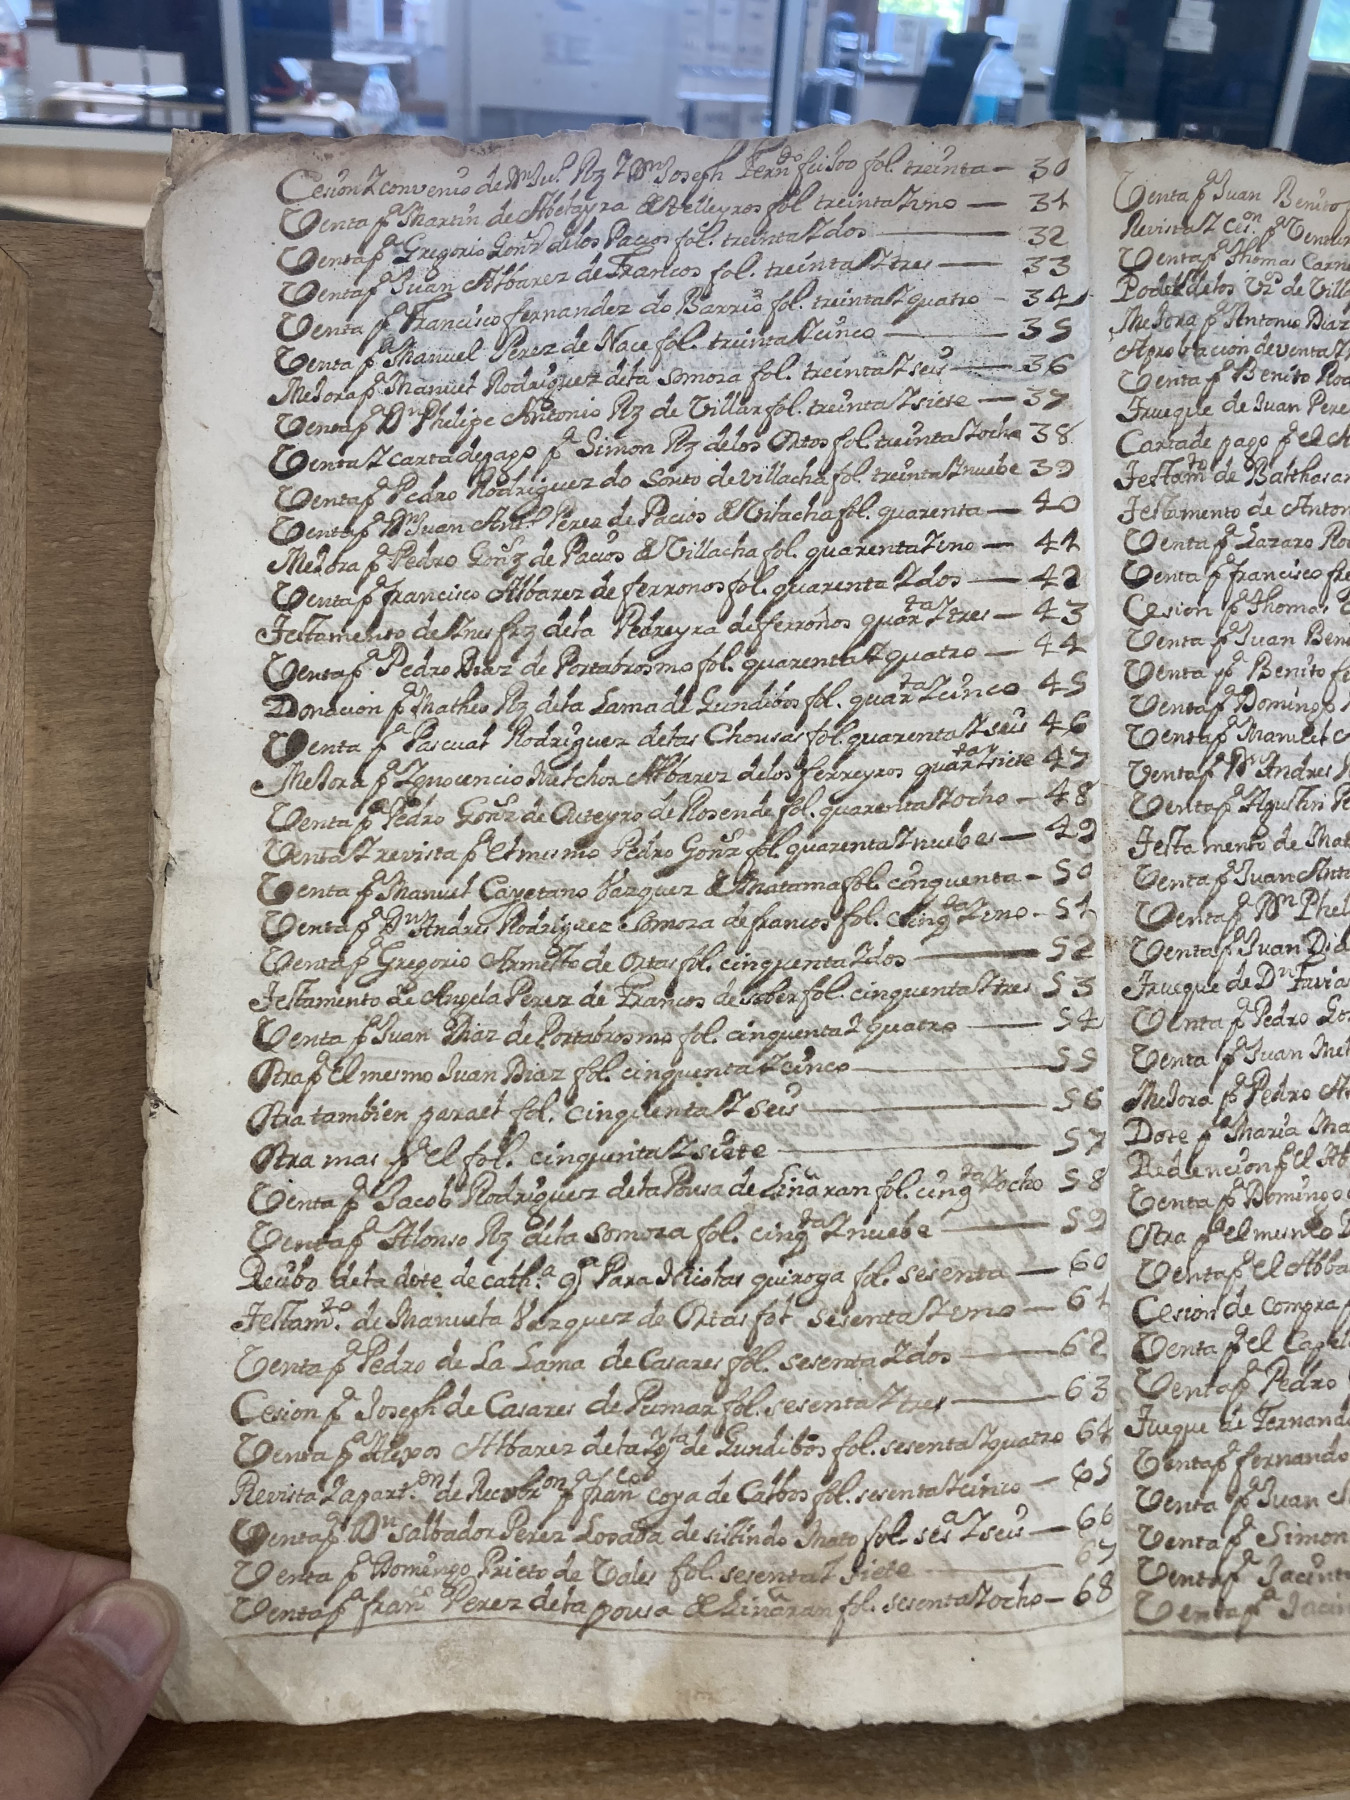 Cesion Z convenio de Dn Ju.º Rz Z Dn Joseph Ferndo fol. treinta — 30
Venta pa Martin de Abeleyra de Velleyros fol treinta Z uno — 31
Venta pa Gregorio Gonz de los Pacios fol. treinta Z dos — 32
Venta pa Juan Albarez de Francos fol. treinta Z tres — 33
Venta pa Francisco fernandez do Barrio fol. treinta Z quatro — 34
Venta pa Manuel Perez de Nace fol. treinta Z cinco — 35
Mejora pa Manuel Rodriguez de la Somoza fol. treinta Z seis — 36
Venta pa Dn Phelipe Antonio Rz de Villar fol. treinta Z siete — 37
Venta Z carta de pago pa Simon Rz de los Ortos fol. treinta Z ocho 38
Venta pa Pedro Rodriguez do Souto de Villacha fol. treinta Z nuebe 39
Venta pa Dn Juan Anto Perez de Pacios de Vilacha fol. quarenta — 40
Mejora pa Pedro Gonz de Pacios de Villacha fol. quarenta Z uno — 41
Venta pa francisco Albarez de ferronos fol. quarenta Z dos — 42
Testamento de Ines frz de la Pedreyra de ferroños quarta Z tres — 43
Venta pa Pedro Diaz de Portabrosmo fol. quarenta Z quatro — 44
Donacion pa Matheo Rz de la Lama de Lundibos fol. quarta Z cinco 45
Venta pa Pascual Rodriguez de las Chousas fol. quarenta Z seis 46
Mejora pa Ygnocencio Melchor Albarez de los ferreyros quarta Z siete 47
Venta pa Pedro Gonz de Outeyro de Rosende fol. quarenta Z ocho — 48
Venta Z revista pa el mesmo Pedro Gonz fol. quarenta Z nuebe — 49
Venta pa Manuel Cayetano Vazquez de Matama fol. cinquenta — 50
Venta pa Dn Andres Rodriguez Somoza de francos fol. cinqta Z uno — 51
Venta pa Gregorio Armesto de Ortas fol. cinquenta Z dos — 52
Testamento de Angela Perez de Francos de sober fol. cinquenta Z tres 53
Venta pa Juan Diaz de Portabrosmo fol. cinquenta Z quatro — 54
Otra pa el mesmo Juan Diaz fol. cinquenta Z cinco — 55
Otra tambien para el fol. cinquenta Z seis — 56
Otra mas pa el fol. cinquenta Z siete — 57
Venta pa Jacob Rodriguez de la Pousa de Liñaran fol. cinqta Z ocho 58
Venta pa Alonso Rz de la Somoza fol. cinqta Z nuebe — 59
Recibo de la dote de Cath.a Para Nicolas quiroga fol. sesenta — 60
Testamto. de Manuela Vazquez de Ortas fol sesenta Z uno — 61
Venta pa Pedro de La Lama de Casares fol. sesenta Z dos — 62
Cesion pa Joseph de Casares de Pumar fol. sesenta Z tres — 63
Venta pa Alexos Albarez de la Yg.ta de Lundibos fol. sesenta Z quatro 64
Revista Z apart.on de Recobron pa franco coya de Calbos fol. sesenta Z cinco — 65
Venta pa Dn Salbador Perez Losada de fol. sesa Z seis — 66
Venta pa Domingo Prieto de Vales fol. sesenta Z siete — 67
Venta pa franco Perez de la pousa de Liñaran fol. sesenta Z ocho — 68
Venta pa Juan Benito
Revista Z
Venta pa Thomas
Poder de los Vzos de
Mejora pa Antonio Diaz
Aprobacion de venta Z
Venta pa Benito
Trueque de Juan
Carta de pago pa el
Testamto de Balthasar
Testamento de
Venta pa Lazaro
Venta pa francisco
Cesion pa Thomas
Venta pa Juan
Venta pa Benito
Venta pa Domingo
Venta pa Manuel
Venta pa Dn Andres
Venta pa Agustin
Testamento de
Venta pa Juan
Venta pa Dn
Venta pa Juan
Trueque de Dn
Venta pa Pedro
Venta pa Juan
Mejora pa Pedro
Dote pa Maria
Redencion pa el
Venta pa Domingo
Otra pa el mesmo
Venta pa el
Cesion de compra
Venta pa el
Venta pa Pedro
Trueque de
Venta pa fernando
Venta pa Juan
Venta pa Simon
Venta pa
Venta pa